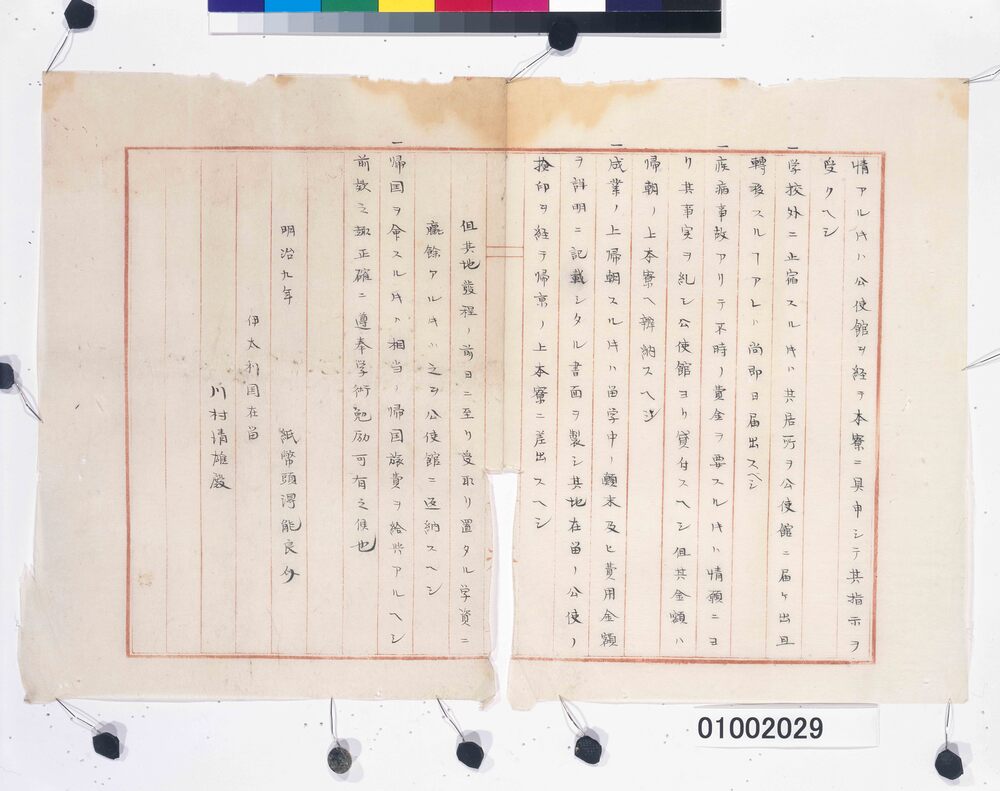 情アル𪜈ハ公使館ヲ経テ本寮ニ具申シテ其指示ヲ
受クヘシ
一学校外ニ止宿スル𪜈ハ其居所ヲ公使館ニ届ケ出且
轉移スルヿアレハ尚即日届出スヘシ
一疾病事故アリテ不時ノ費金ヲ要スル𪜈ハ情願ニヨ
リ其事実ヲ糺シ公使館ヨリ貸付スヘシ但其金額ハ
帰朝ノ上本寮ヘ辨納スヘシ
一成業ノ上帰朝スル𪜈ハ留学中ノ顛末及ヒ費用金額
ヲ詳明ニ記載シタル書面ヲ製シ其地在留ノ公使ノ
検印ヲ経テ帰京ノ上本寮ニ差出スヘシ
但其地發程ノ前日ニ至リ受取リ置タル学資ニ
羸餘アル𪜈ハ之ヲ公使館ニ返納スヘシ
一帰国ヲ命スル𪜈ハ相当ノ帰国旅費ヲ給與アルヘシ
前款之趣正確ニ遵奉学術勉励可有之候也
明治九年
紙幣頭得能良介
伊太利国在留
川村清雄殿
01002029